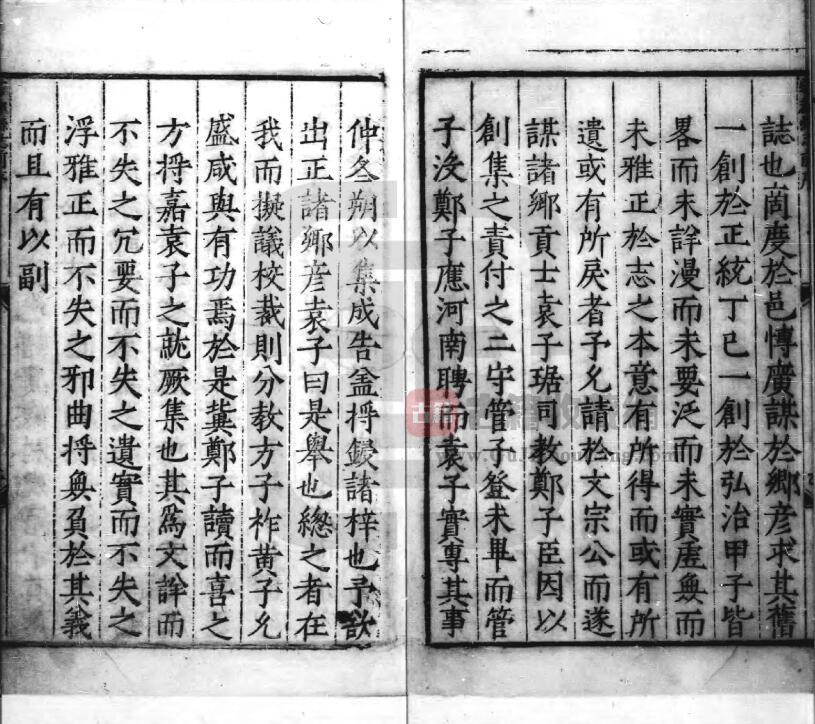 誌也啇度於邑愽廣謀於鄉彦求其舊
一創於正統丁巳一創於弘治甲子皆
畧而未詳漫而未要泛而未實虗無而
未雅正於志之本意有所得而或有所
遺或有所戾者予允請於文宗公而遂
謀諸鄉貢士袁子琚司教鄭子臣因以
創集之責付之二守管子登未畢而管
子沒鄭子應河南聘而袁子實專其事
仲冬朔以集成告盆捋鋟諸梓也予欲
出正諸鄉彦袁子曰是舉也緫之者在
我而擬議校裁則分教方子柞黄子允
盛咸與有功焉於是冀鄭子讀而喜之
方捋嘉袁子之就厥集也其爲文詳而
不失之冗要而不失之遺實而不失之
浮雅正而不失之邪曲捋無負於其義
而且有以副
古籍